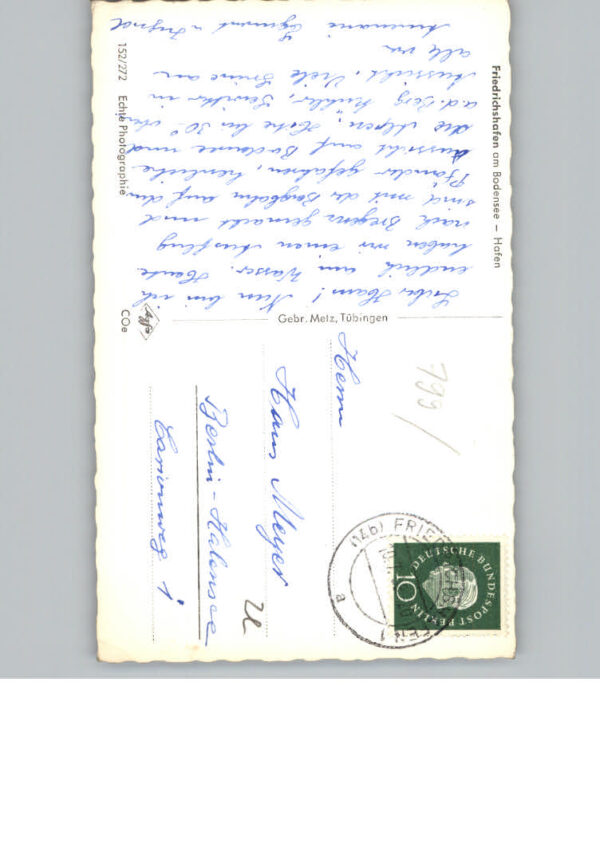 Friedrichshafen am Bodensee – Hafen
Lieber Hans! Nun bin ich
endlich am Wasser. Heute
haben wir einen Ausflug
nach Bregenz gemacht und
sind mit der Bergbahn auf den
Pfänder gefahren, herrliche
Aussicht auf Bodensee und
die Alpen. Hitze bis 30°
a. d. Berg kühler, Gewitter in
Aussicht. Viele Grüße an
alle von
Annemarie
152/272 Echte Photographie
Agfa
COe
Gebr. Metz, Tübingen
799/
Herrn
Hans Meyer
Berlin-Halensee
1
DEUTSCHE BUNDESPOST BERLIN
10
(14b) FRIEDRICHSHAFEN 1
a